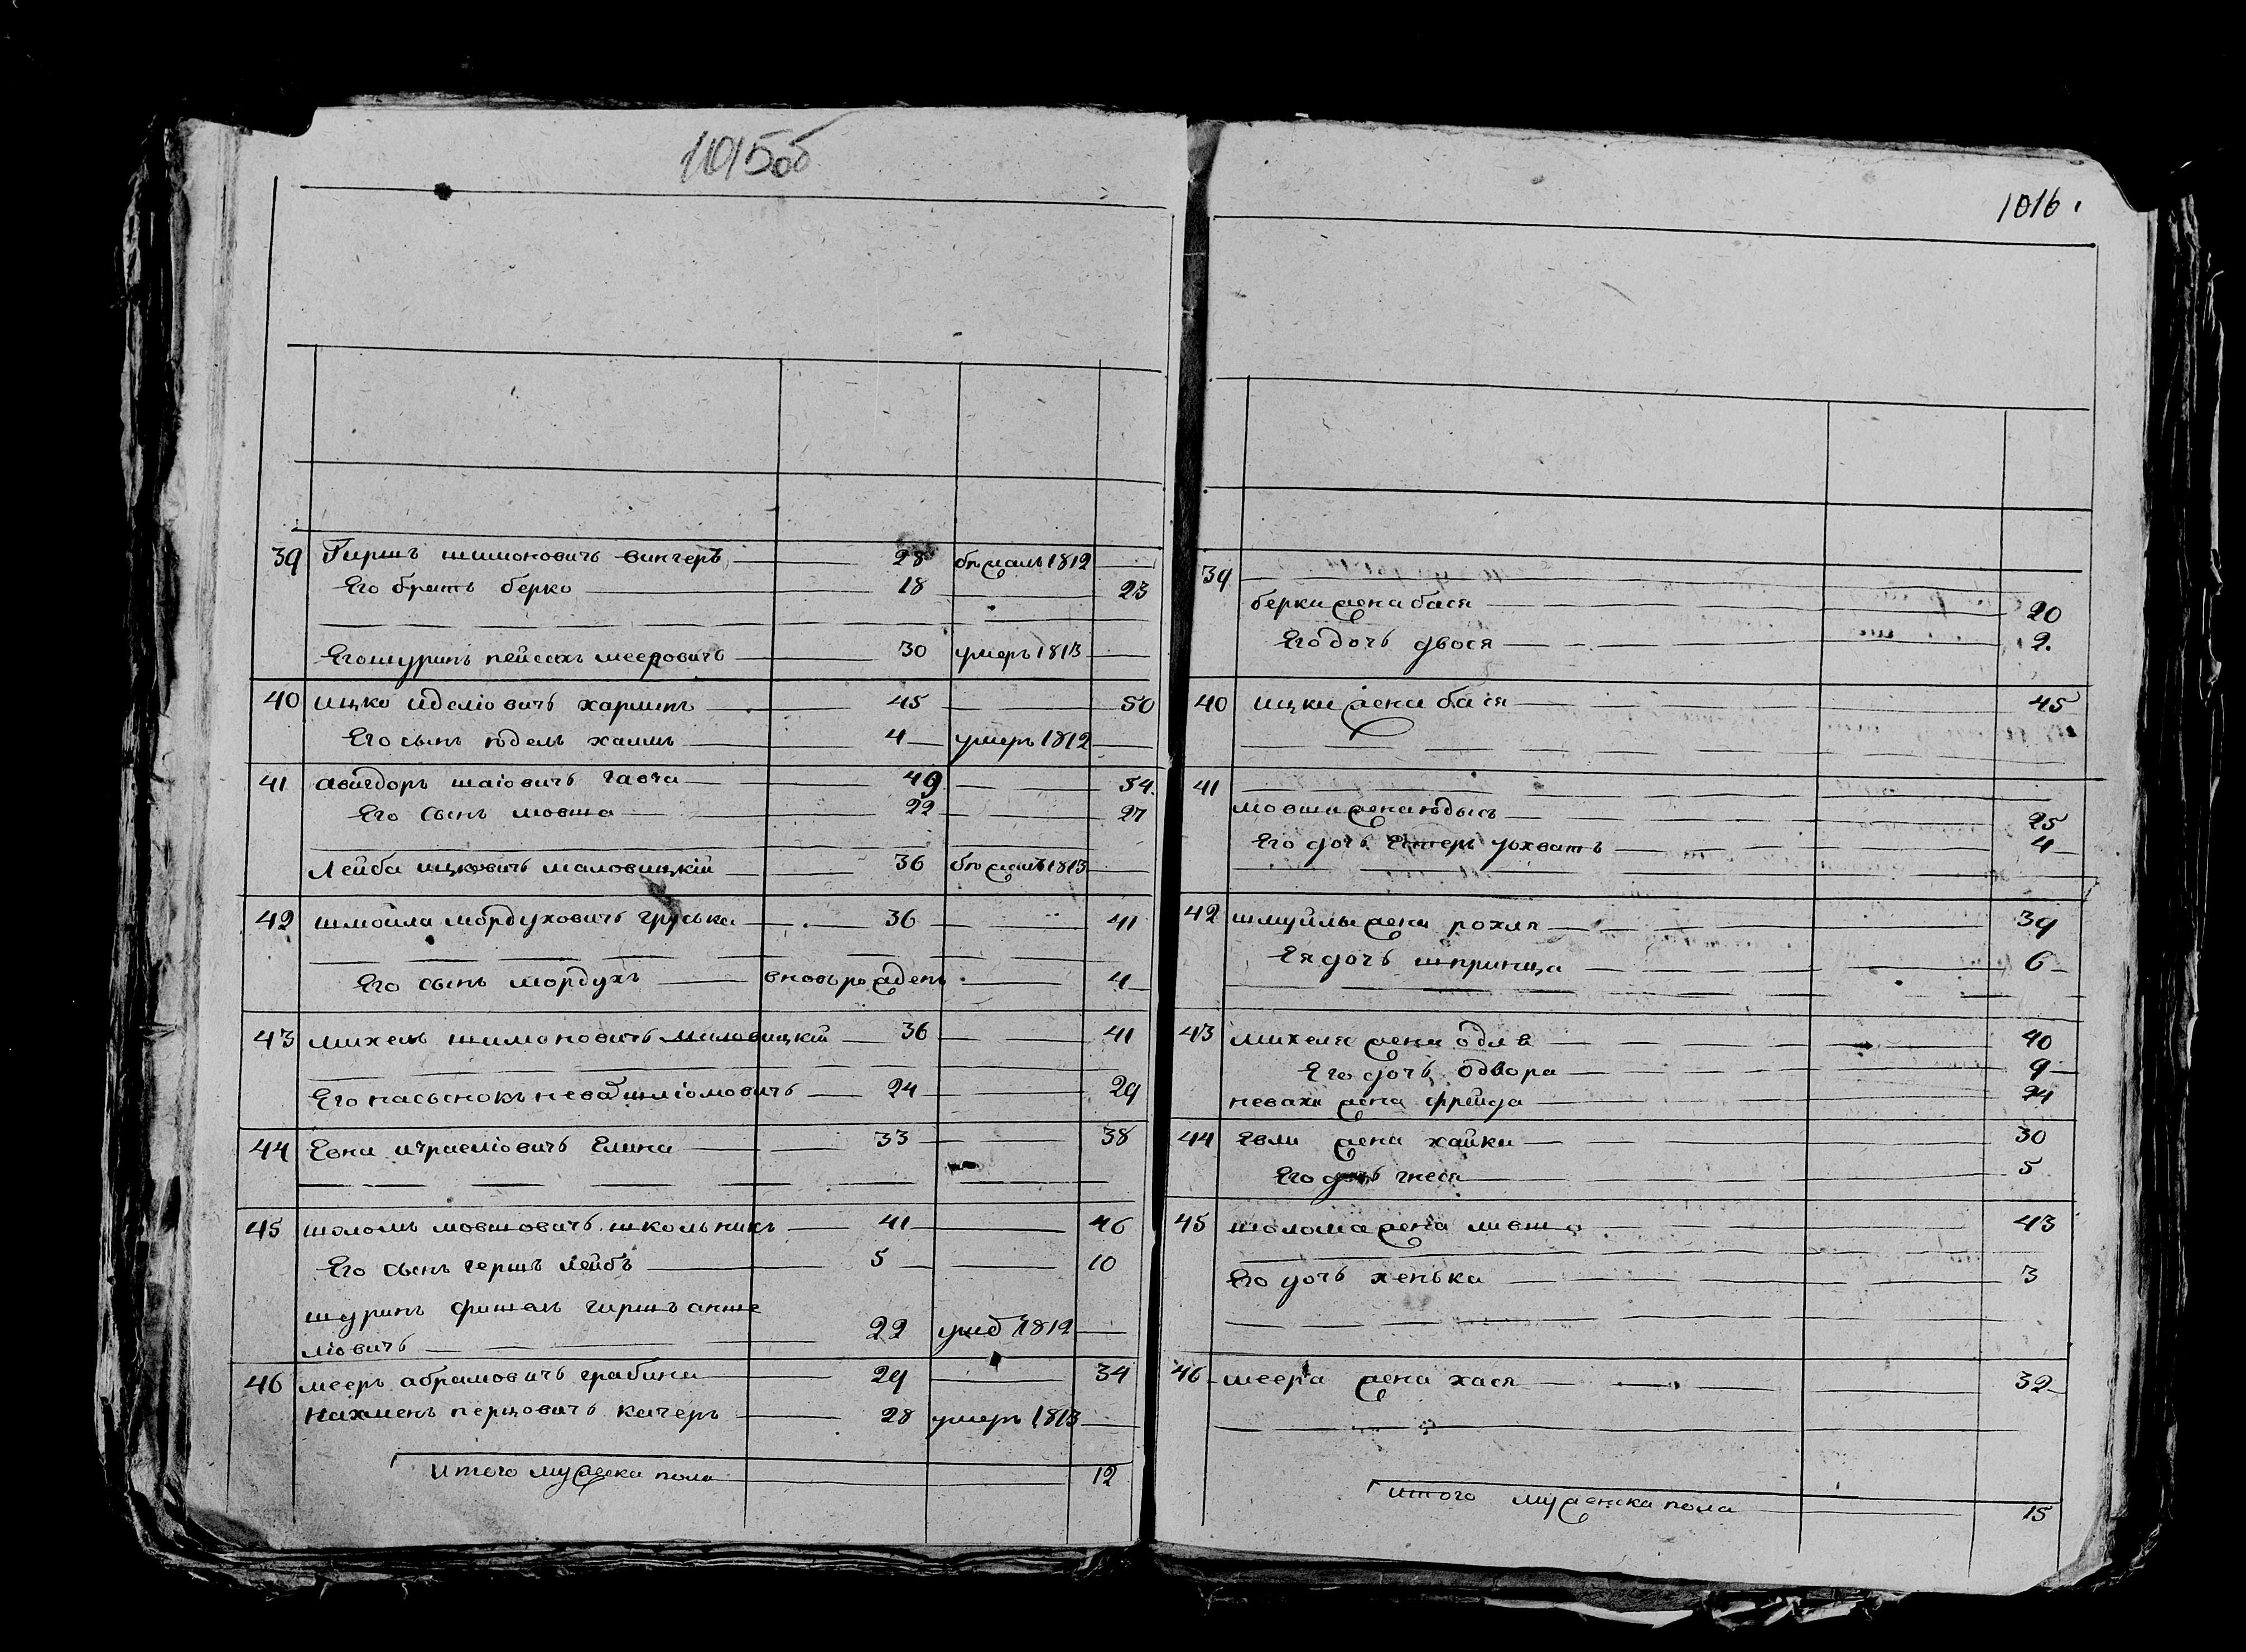 1015об
39 Гиршъ шимоновичъ винчеръ 28 бѣжалъ 1812
Его братъ берко 18 23
Его шуринъ пейсахъ мееровичъ 30 умеръ 1813
40 ицко иделіовичъ 45 50
Его сынъ юдель хаимъ 4 умеръ 1812
41 авигдоръ шаіовичъ 49 54
Его сынъ мовша 22 27
Лейба ицковичъ маловицкій 36 бѣжалъ 1813
42 шмойла мордуховичъ грузька 36 41
Его сынъ мордухъ вновь рожденъ 4
43 михель шимановичъ маловицкій 36 41
Его пасынокъ невахъ шліомовичъ 24 29
44 Евна израеліовичъ Елина 33 38
45 шоломъ мовшовичъ школьникъ 41 46
Его сынъ гершъ лейбъ 5 10
шуринъ фишель гиршъ анше
ліовичъ 22 1812
46 мееръ абрамовичъ грабина 29 34
нахменъ перцовичъ качеръ 28 умеръ 1813
Итого мужеска пола 12
1016.
39
берки жена бася 20
Его дочь двося 2.
40 ицки жена бася 45
41
мовши жена юдысь 25
Его дочь Естеръ 4
42 шмуйлы жена рохля 39
Ея дочь шпринца 6
43 михеля жена одля 40
Его дочь двора 9
невахи жена фрейда 24
44 Евли жена хайка 30
Его дочь гнеся 5
45 шолома жена ливша 43
Его дочь хенька 3
46 меера жена хася 32
итого муженска пола 15